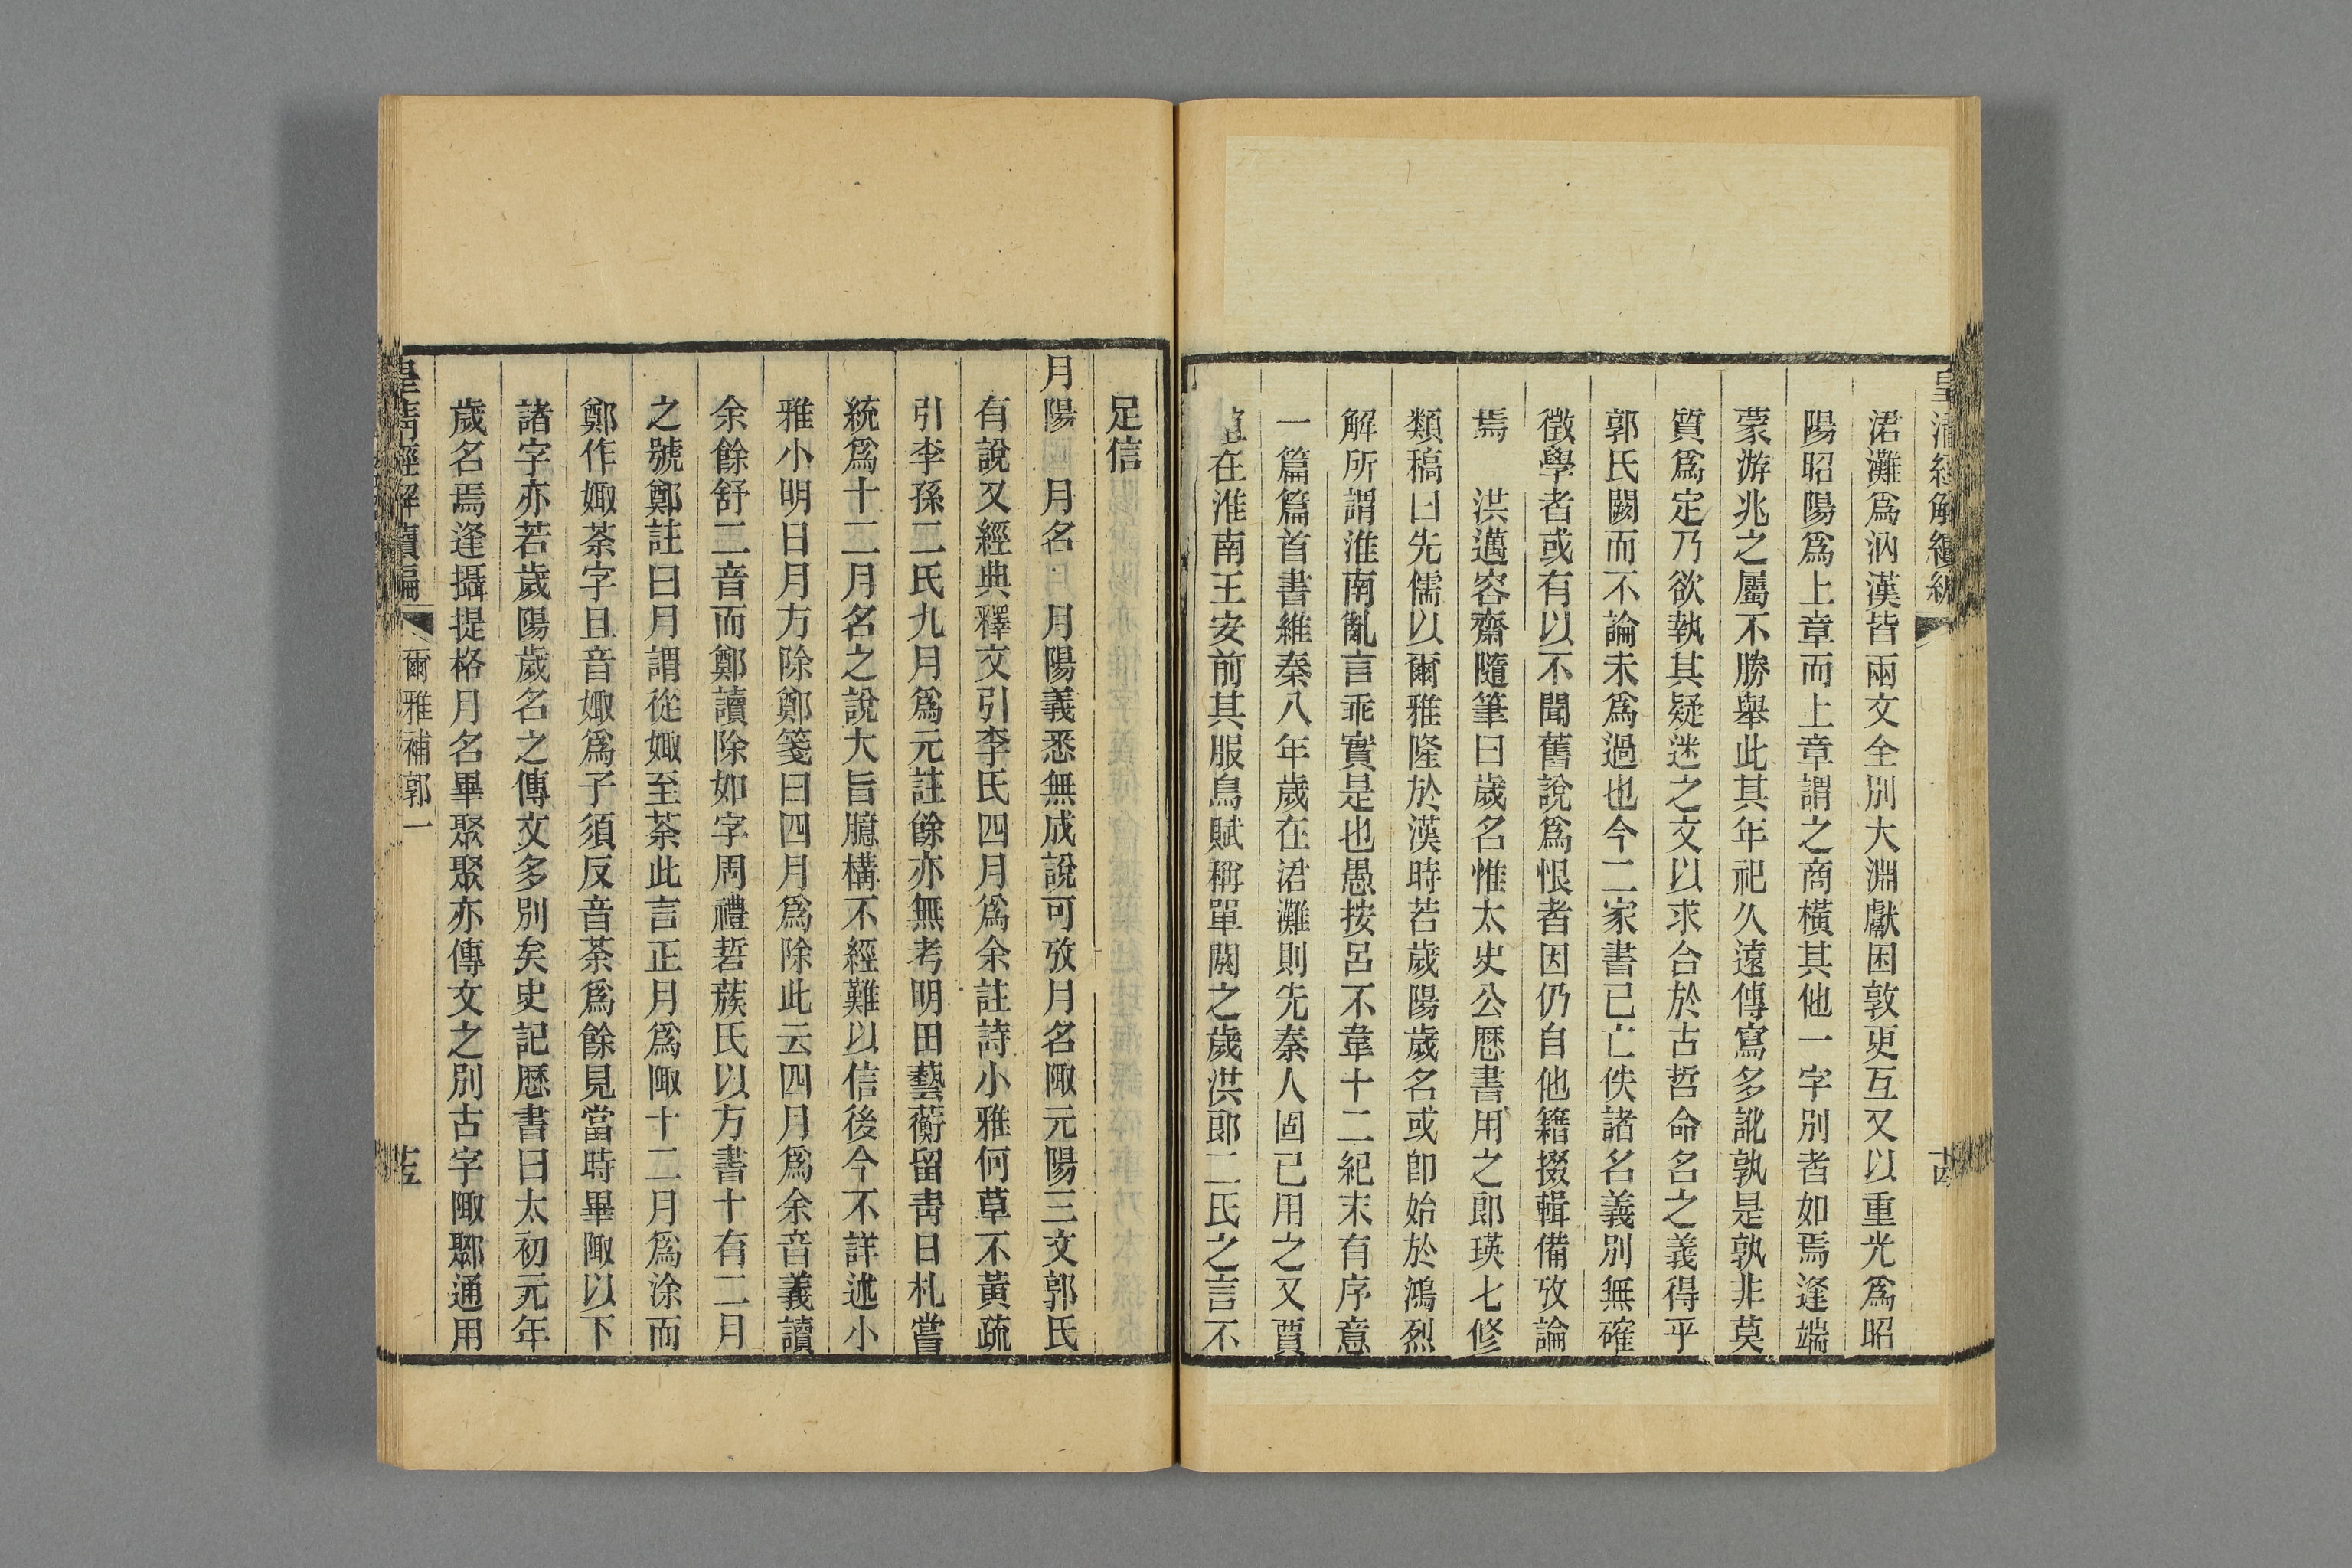 皇清經解續編
十四
涒灘爲汭漢皆兩文全別大淵獻困敦更互又以重光爲昭
陽昭陽爲上章而上章謂之商橫其他一字別者如焉逢端
蒙游兆之屬不勝舉此其年祀久遠傳寫多訛孰是孰非莫
質爲定乃欲執其疑迷之文以求合於古哲命名之義得乎
郭氏闕而不論未爲過也今二家書已亡佚諸名義別無確
徵學者或有以不聞舊說爲恨者因仍自他籍掇輯備攷論
焉　洪邁容齋隨筆曰歲名惟太史公厯書用之郎瑛七修
類稿曰先儒以爾雅隆於漢時若歲陽歲名或卽始於鴻烈
解所謂淮南亂言乖實是也愚按呂不韋十二紀末有序意
一篇篇首書維秦八年歲在涒灘則先秦人固已用之又賈
誼在淮南王安前其服鳥賦稱單閼之歲洪郎二氏之言不
足信
月陽　月名　月陽義悉無成說可攷月名陬元陽三文郭氏
有說又經典釋文引李氏四月爲余註詩小雅何草不黃疏
引李孫二氏九月爲元註餘亦無考明田藝蘅留靑日札嘗
統爲十二月名之說大旨臆構不經難以信後今不詳述小
雅小明日月方除鄭箋曰四月爲除此云四月爲余音義讀
余餘舒二音而鄭讀除如字周禮硩蔟氏以方書十有二月
之號鄭註曰月謂從娵至荼此言正月爲陬十二月爲涂而
鄭作娵荼字且音娵爲子須反音荼爲餘見當時畢陬以下
諸字亦若歲陽歲名之傳文多別矣史記厯書曰太初元年
歲名焉逢攝提格月名畢聚聚亦傳文之別古字陬鄹通用
皇清經解續編
爾雅補郭一
十五